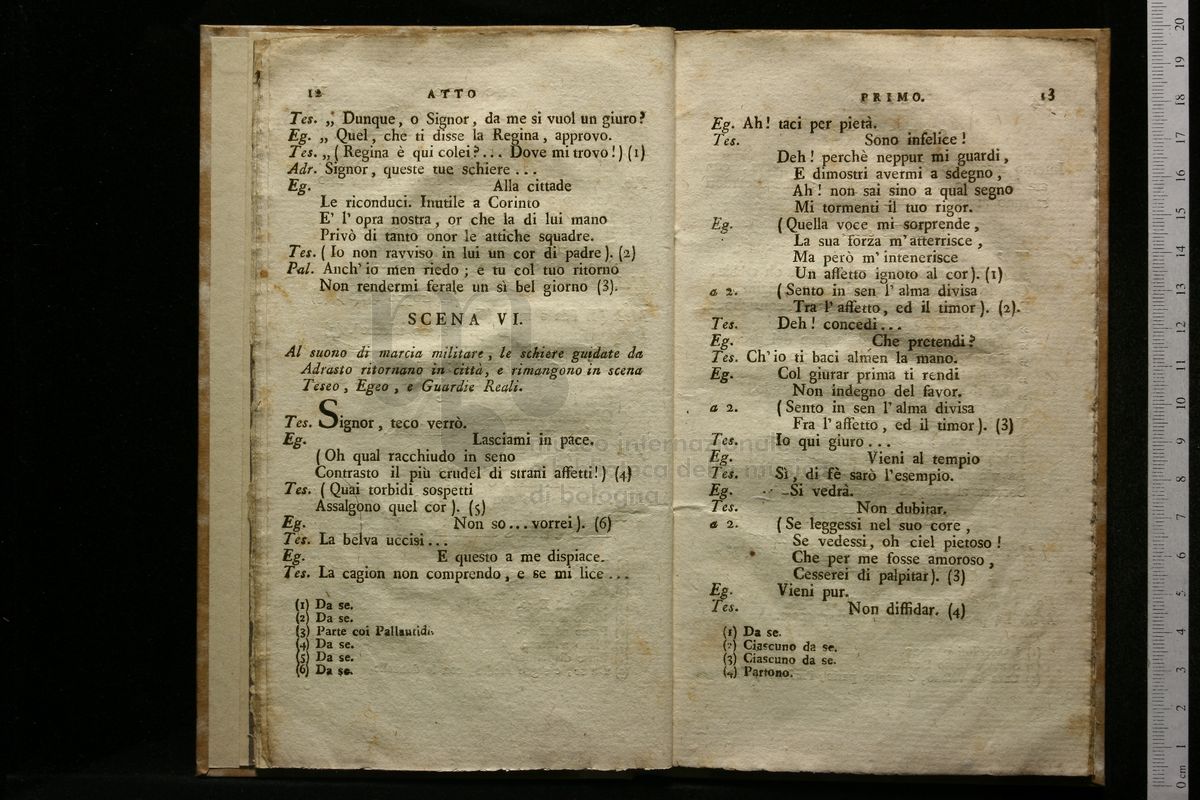 12 ATTO
Tes. „ Dunque, o Signor, da me si vuol un giuro?
Eg. „ Quel, che ti disse la Regina, approvo.
Tes. „ (Regina è qui colei?... Dove mi trovo!) (1)
Adr. Signor, queste tue schiere ...
Eg. Alla cittade
Le riconduci. Inutile a Corinto
E' l'opra nostra, or che la di lui mano
Privò di tanto onor le attiche squadre.
Tes. (Io non ravviso in lui un cor di padre). (2)
Pal. Anch'io men riedo; e tu col tuo ritorno
Non rendermi ferale un sì bel giorno (3).
SCENA VI.
Al suono di marcia militare, le schiere guidate da
Adrasto ritornano in città, e rimangono in scena
Teseo, Egeo, e Guardie Reali.
Tes. Signor, teco verrò.
Eg. Lasciami in pace.
(Oh qual racchiudo in seno
Contrasto il più crudel di strani affetti!) (4)
Tes. (Quai torbidi sospetti
Assalgono quel cor). (5)
Eg. Non so... vorrei). (6)
Tes. La belva uccisi...
Eg. E questo a me dispiace.
Tes. La cagion non comprendo, e se mi lice ...
(1) Da se.
(2) Da se.
(3) Parte coi Pallantidi.
(4) Da se.
(5) Da se.
(6) Da se.
PRIMO. 13
Eg. Ah! taci per pietà.
Tes. Sono infelice!
Deh! perchè neppur mi guardi,
E dimostri avermi a sdegno,
Ah! non sai sino a qual segno
Mi tormenti il tuo rigor.
Eg. (Quella voce mi sorprende,
La sua forza m'atterrisce,
Ma però m'intenerisce
Un affetto ignoto al cor). (1)
a 2. (Sento in sen l'alma divisa
Tra l'affetto, ed il timor). (2).
Tes. Deh! concedi...
Eg. Che pretendi?
Tes. Ch'io ti baci almen la mano.
Eg. Col giurar prima ti rendi
Non indegno del favor.
a 2. (Sento in sen l'alma divisa
Fra l'affetto, ed il timor). (3)
Tes. Io qui giuro...
Eg. Vieni al tempio
Tes. Sì, di fè sarò l'esempio.
Eg. Si vedrà.
Tes. Non dubitar.
a 2. (Se leggessi nel suo core,
Se vedessi, oh ciel pietoso!
Che per me fosse amoroso,
Cesserei di palpitar). (3)
Eg. Vieni pur.
Tes. Non diffidar. (4)
(1) Da se.
(2) Ciascuno da se.
(3) Ciascuno da se.
(4) Partono.
museo internazionale
e biblioteca della musica
di bologna
0 cm 1 2 3 4 5 6 7 8 9 10 11 12 13 14 15 16 17 18 19 20